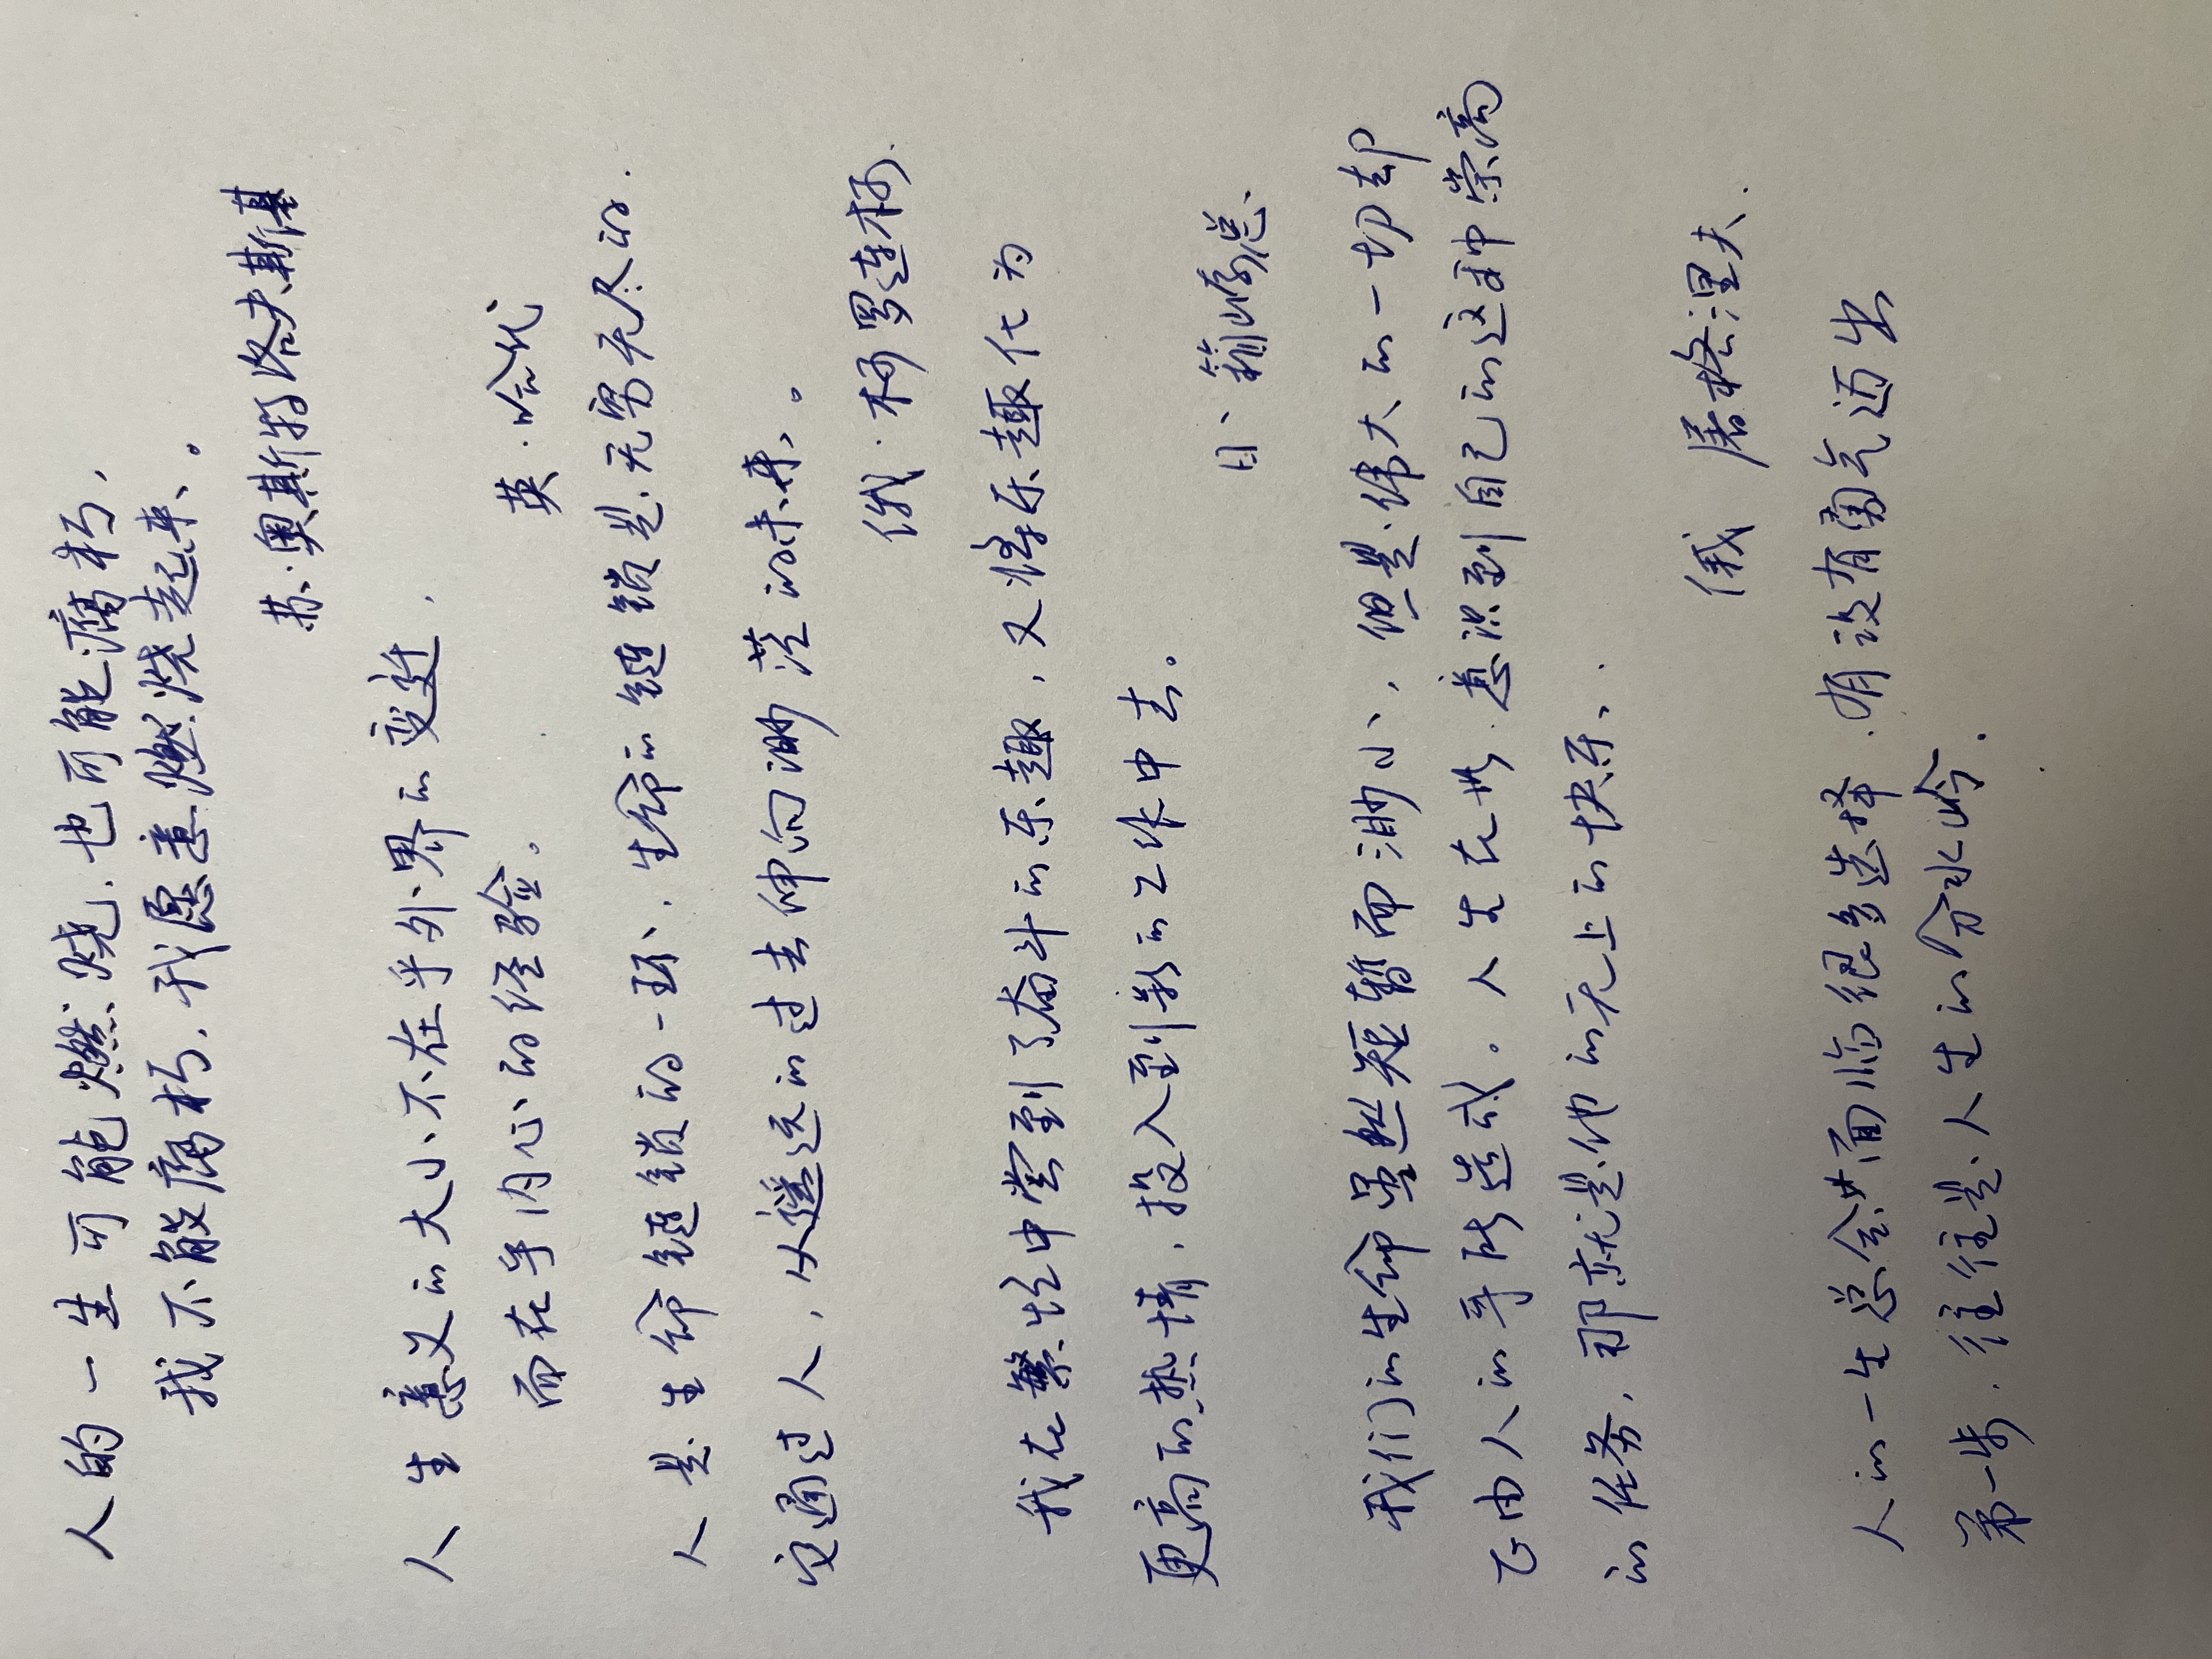 人的一生可能燃烧,也可能腐朽,
我不能腐朽,我愿意燃烧起来。
苏·奥斯特洛夫斯基
人生意义的大小不在乎外界的变迁,
而在乎内心的经验。 英·哈代
人是生命链锁的一环,生命的链锁是无穷无尽的.
它通过人,从遥远的过去伸向渺茫的未来。
俄·柯罗连柯.
我在繁忙中尝到了奋斗的乐趣,又将乐趣化为
更高的热情,投入到新的工作中去。
日、箱崎总
我们的生命虽然短暂而渺小,但是伟大的一切却
正由人的手所造成。人生在世,意识到自己的这种崇高
的任务,那就是他的无上的快乐。
俄 屠格涅夫.
人的一生总会面临很多选择,有没有勇气迈出
第一步,往往是人生的分水岭.